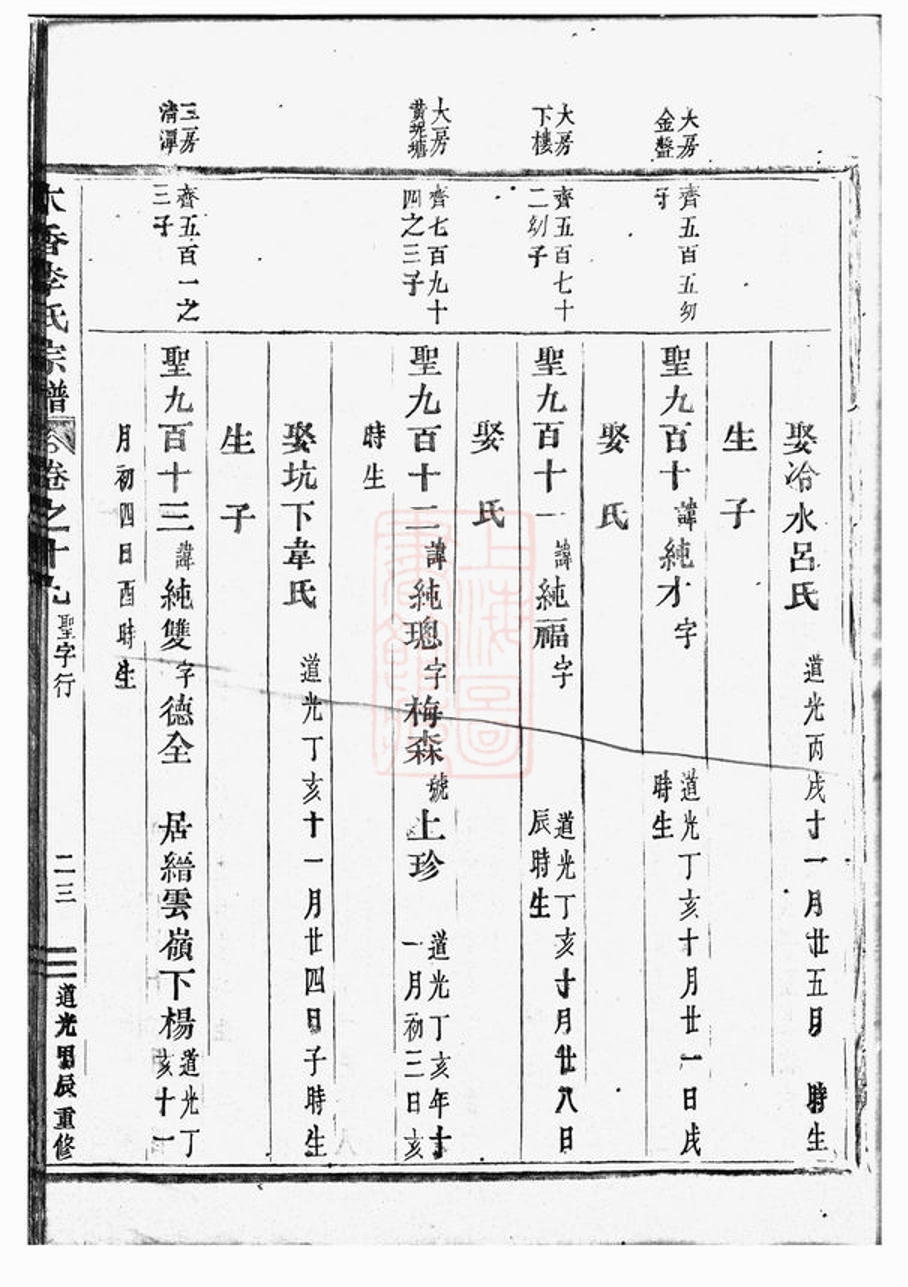 娶冷水呂氏 道光丙戌十一月廿五日 時生
生子
大房金盤
齊五百五幼子
聖九百十諱純才字 道光丁亥十月廿一日戌時生
娶 氏
大房下樓
齊五百七十二幼子
聖九百十一諱純福字 道光丁亥十月廿八日辰時生
娶 氏
大房黃坭塘
齊七百九十四之三子
聖九百十二諱純璁字梅森號上珍 道光丁亥年十一月初三日亥
時生
娶坑下韋氏 道光丁亥十一月廿四日子時生
生子
三房清潭
齊五百一之三子
聖九百十三諱純雙字德全 居縉雲嶺下楊 道光丁亥十一
月初四日酉時生
香李氏宗譜 卷之十九 聖字行 二三 道光甲辰重修
上海圖書館藏